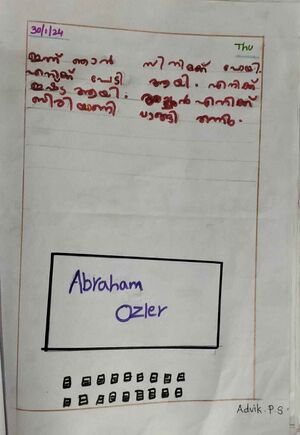 30/1/24
Thu
ഇന്ന് ഞാൻ സിനിമക്ക് പോയി.
എനിക്ക് പേടി ആയി. എനിക്ക്
ഇഷ്ടം ആയി. അച്ഛൻ എനിക്ക്
ബിരിയാണി വാങ്ങി തന്നു.
Abraham
Ozler
Advik. P S